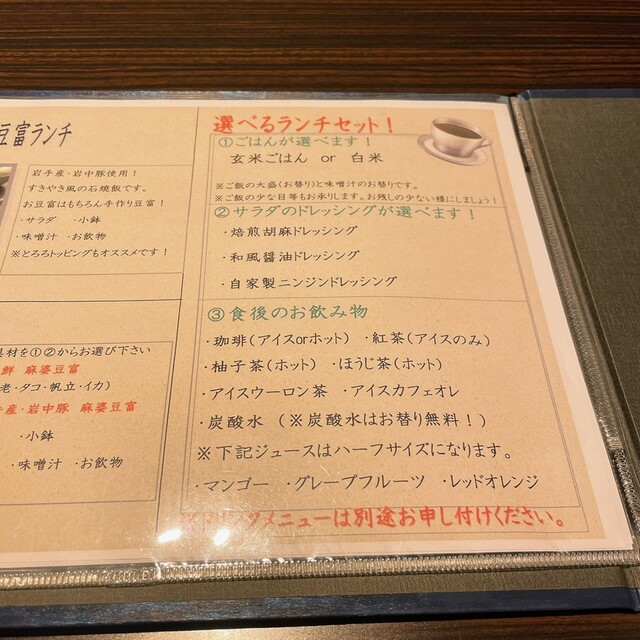 豆富ランチ
岩手産・岩中豚使用!
すきやき風の石焼飯です。
お豆富はもちろん手作り豆富!
・サラダ ・小鉢
・味噌汁 ・お飲物
※とろろトッピングもオススメです!
具材を①②からお選び下さい
鮮 麻婆豆富
老・タコ・帆立・イカ)
産・岩中豚 麻婆豆富
・小鉢
・味噌汁 ・お飲物
選べるランチセット!
①ごはんが選べます!
玄米ごはん or 白米
※ご飯の大盛(お替り)と味噌汁のお替りです。
※ご飯の少な目等もお承りします。お残しの少ない様にしましょう!
②サラダのドレッシングが選べます!
・焙煎胡麻ドレッシング
・和風醤油ドレッシング
・自家製ニンジンドレッシング
③食後のお飲み物
・珈琲(アイスorホット) ・紅茶(アイスのみ)
・柚子茶(ホット) ・ほうじ茶(ホット)
・アイスウーロン茶 ・アイスカフェオレ
・炭酸水 (※炭酸水はお替り無料!)
※下記ジュースはハーフサイズになります。
・マンゴー ・グレープフルーツ ・レッドオレンジ
※ドリンクメニューは別途お申し付けください。